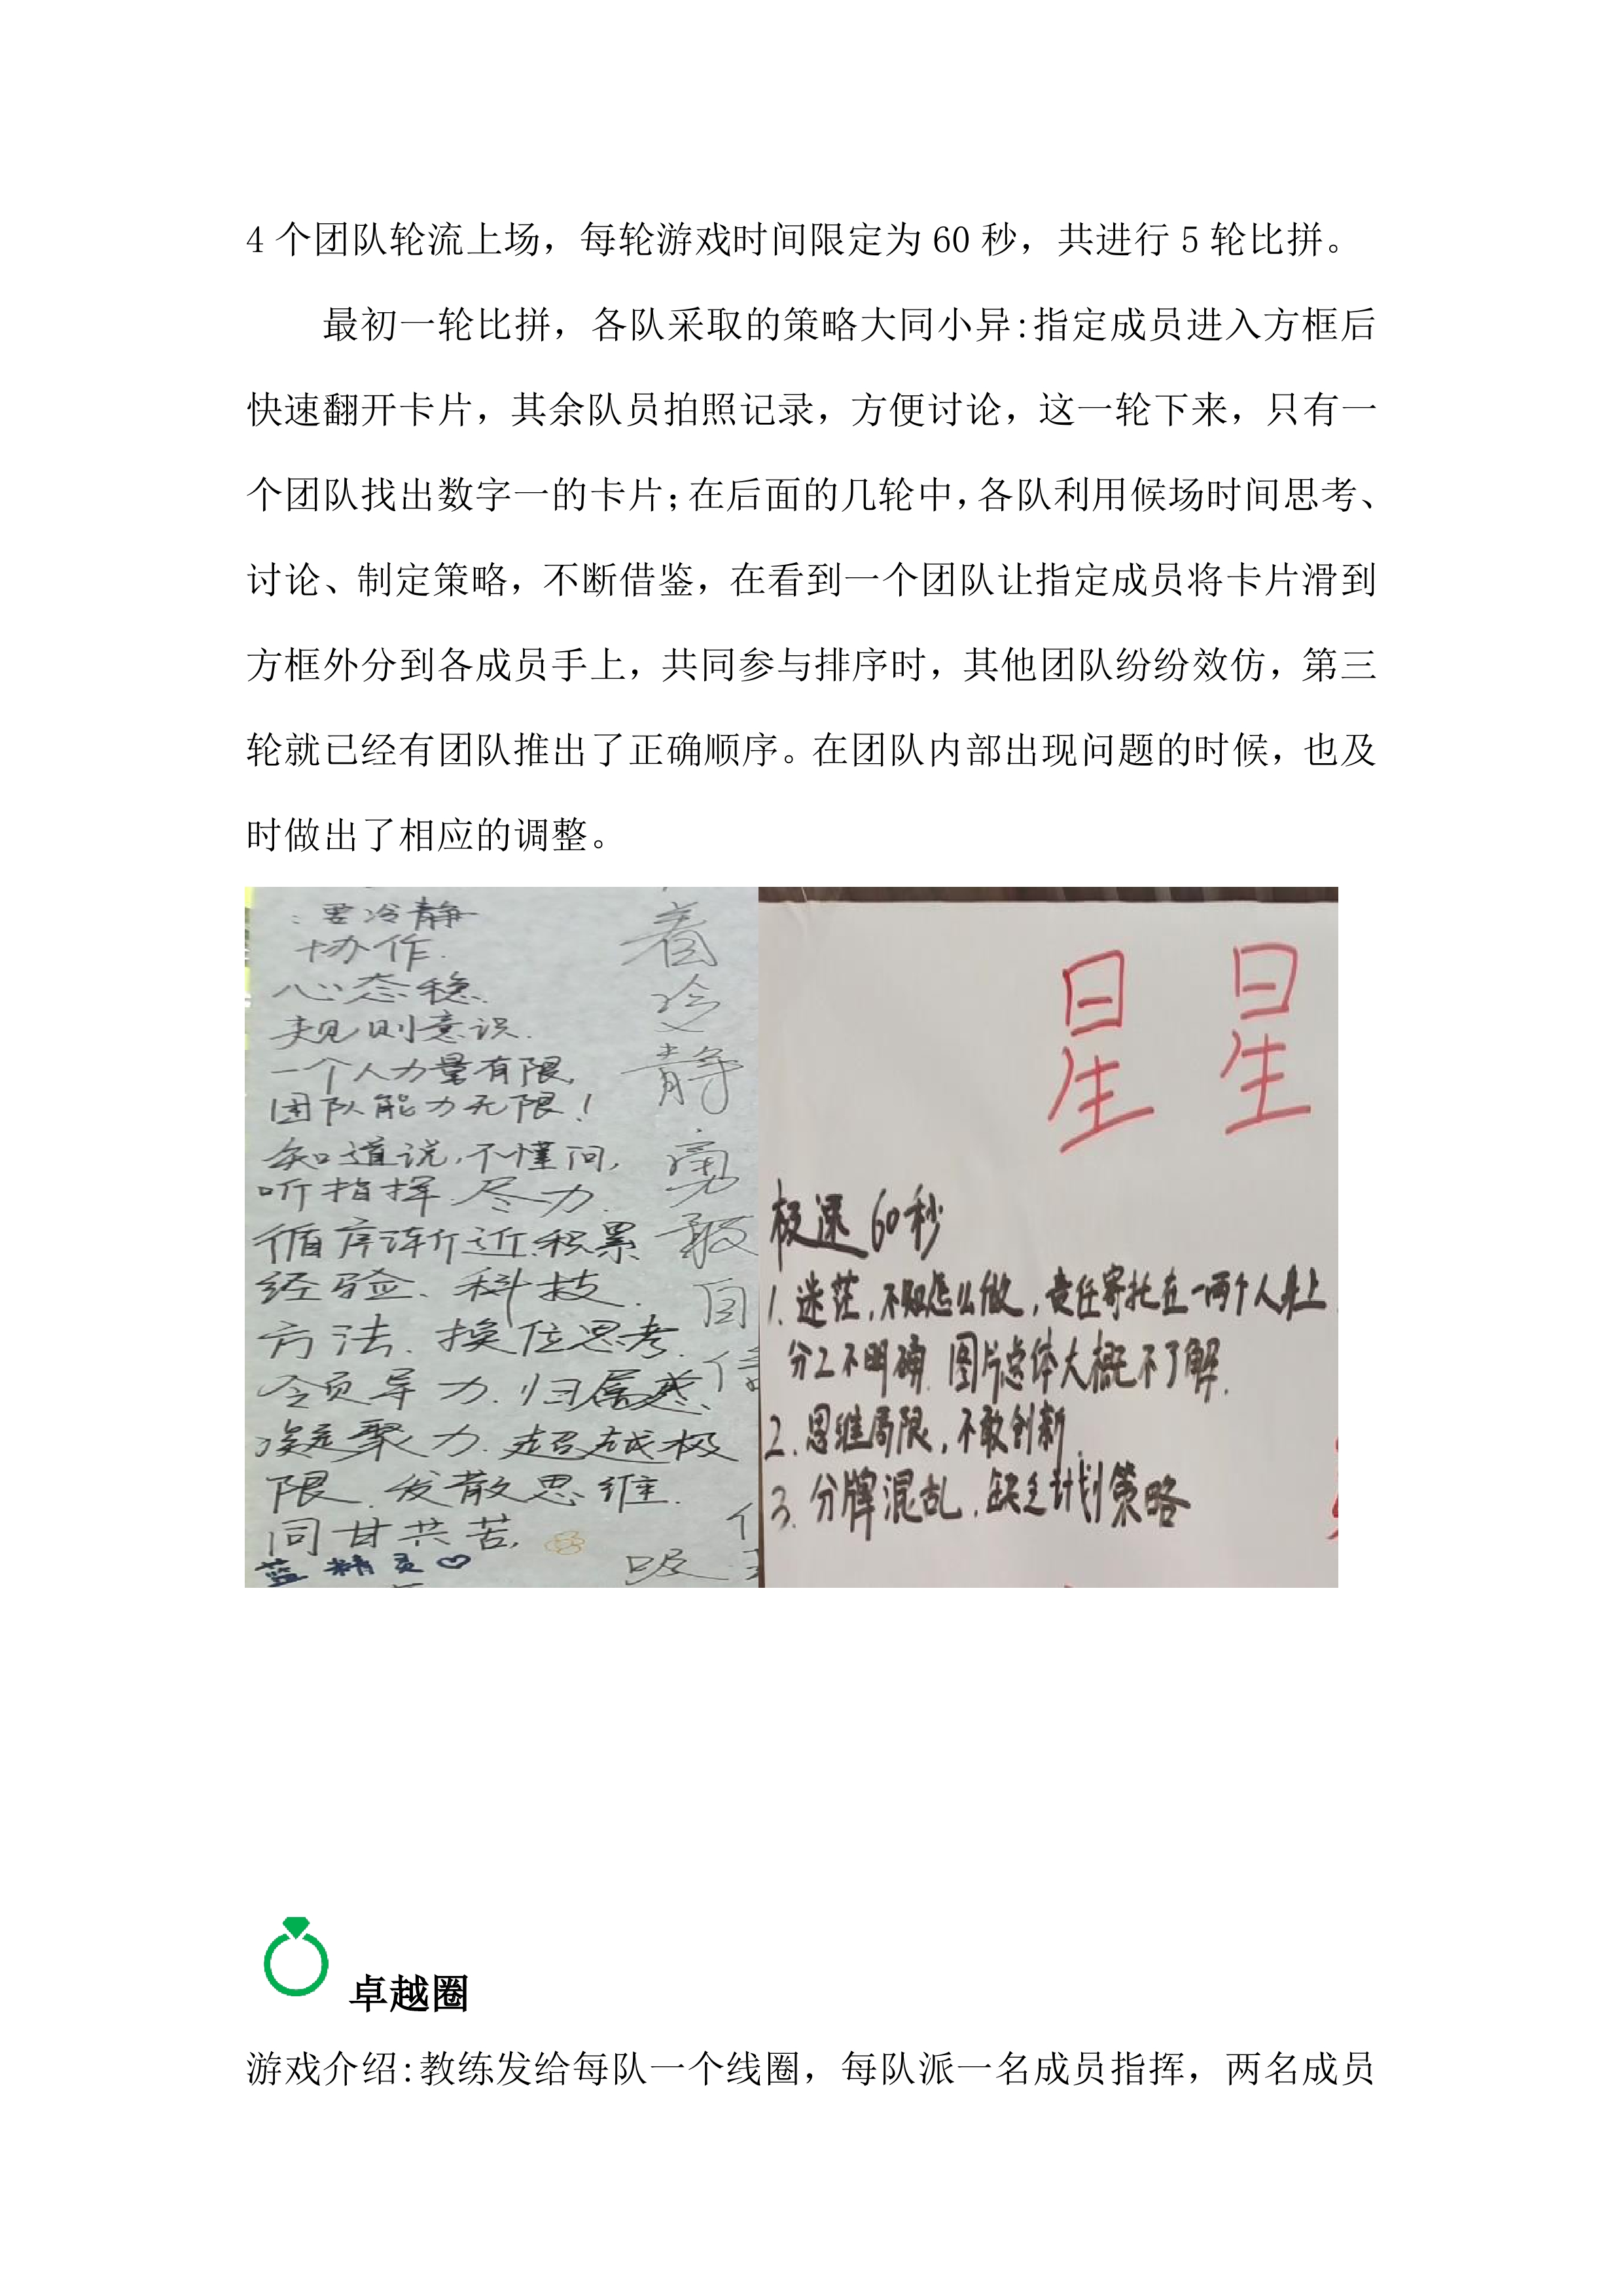 4 个团队轮流上场，每轮游戏时间限定为 60 秒，共进行 5 轮比拼。
最初一轮比拼，各队采取的策略大同小异:指定成员进入方框后
快速翻开卡片，其余队员拍照记录，方便讨论，这一轮下来，只有一
个团队找出数字一的卡片;在后面的几轮中,各队利用候场时间思考、
讨论、制定策略，不断借鉴，在看到一个团队让指定成员将卡片滑到
方框外分到各成员手上，共同参与排序时，其他团队纷纷效仿，第三
轮就已经有团队推出了正确顺序。在团队内部出现问题的时候，也及
时做出了相应的调整。
要冷静
协作.
心态稳.
规则意识.
一个人力量有限,
团队能力无限！
知道说,不懂问,
听指挥.尽力.
循序渐近.积累
经验、科技.
方法.换位思考.
领导力.归属感、
凝聚力.超越极
限.发散思维.
同甘共苦,
蓝精灵♡
着
静
勇
敢
自
吸
星 星
极速60秒
1.迷茫,不知怎么做,责任寄托在一两个人身上
分工不明确.图片总体大概不了解.
2.思维局限,不敢创新.
3.分牌混乱,缺乏计划策略
卓越圈
游戏介绍:教练发给每队一个线圈，每队派一名成员指挥，两名成员